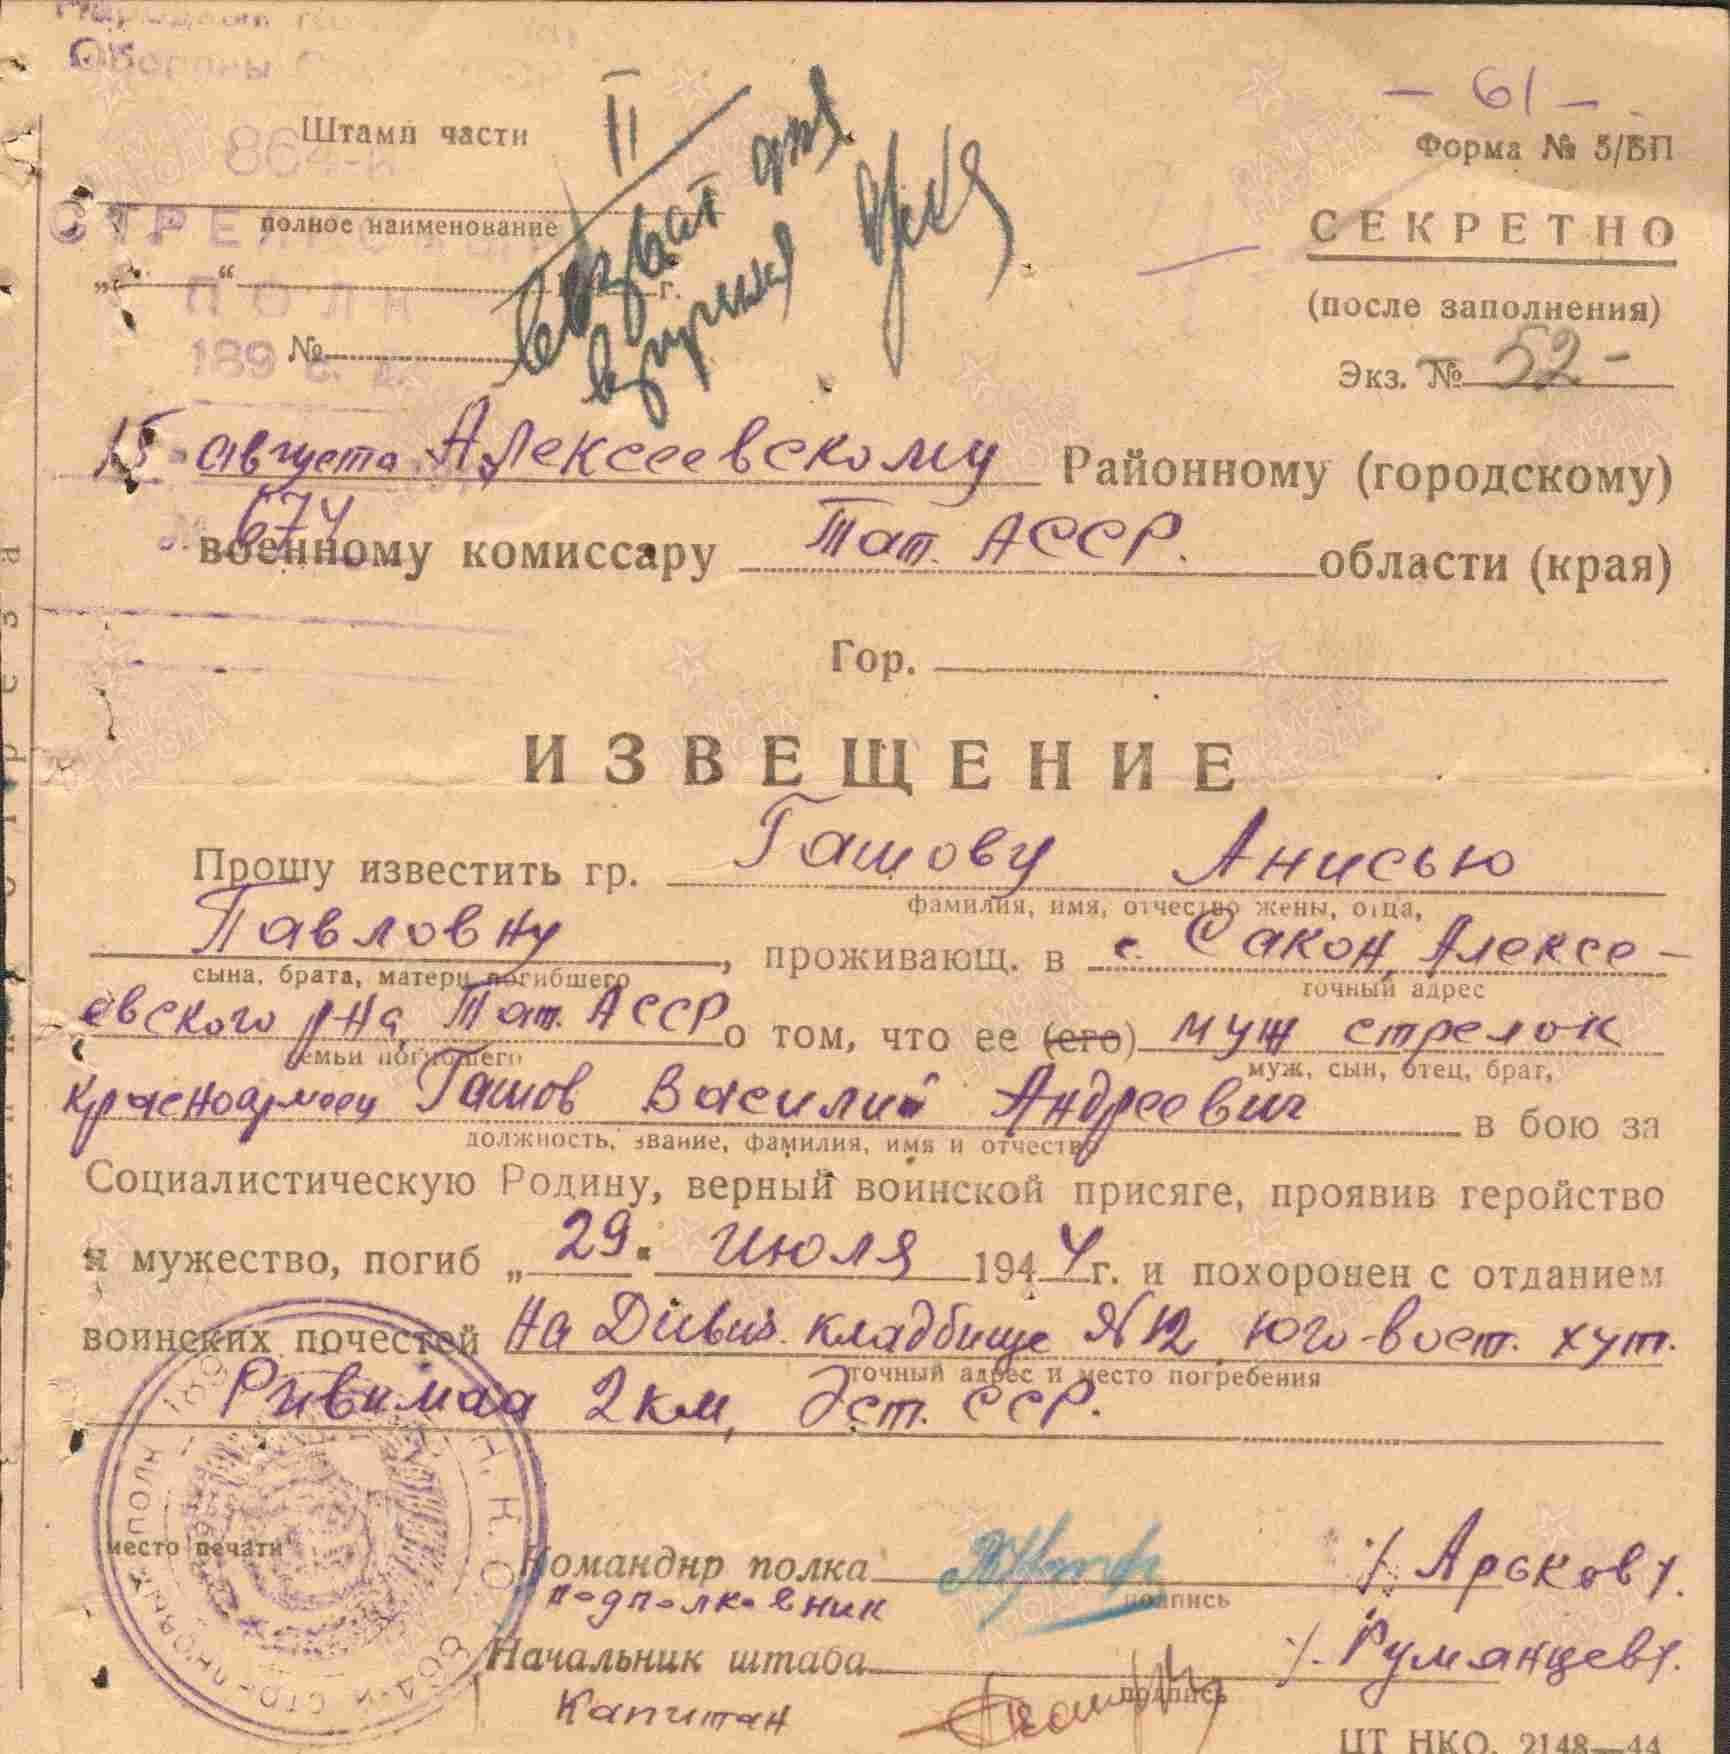 Обороны
Штамп части
864-й
полное наименование
СТРЕЛКОВЫЙ
ПОЛК
г.
189 с. д.
№
II
- 61 -
Форма № 5/БП
СЕКРЕТНО
(после заполнения)
Экз. № 52-
15 августа Алексеевскому Районному (городскому)
674
военному комиссару Тат. АССР. области (края)
Гор.
ИЗВЕЩЕНИЕ
Прошу известить гр. Гашову Анисью
фамилия, имя, отчество жены, отца,
Павловну, проживающ. в с. Сакон, Алексе-
сына, брата, матери погибшего
точный адрес
евского р-на, Тат. АССР о том, что ее (его) муж стрелок
семьи погибшего
муж, сын, отец, брат,
красноармеец Гашов Василий Андреевич в бою за
должность, звание, фамилия, имя и отчество
Социалистическую Родину, верный воинской присяге, проявив геройство
и мужество, погиб „29" июля 1944 г. и похоронен с отданием
воинских почестей на Дивиз. кладбище №12, юго-вост. хут.
точный адрес и место погребения
Ривимаа 2 км, Эст. ССР.
место печати
Н.К.О. 864-й СТРЕЛКОВЫЙ ПОЛК 189
Командир полка /Арьков/.
подпись
подполковник
Начальник штаба /Румянцев/.
подпись
Капитан
ЦТ НКО. 2148—44
отреза
ПАМЯТЬ НАРОДА